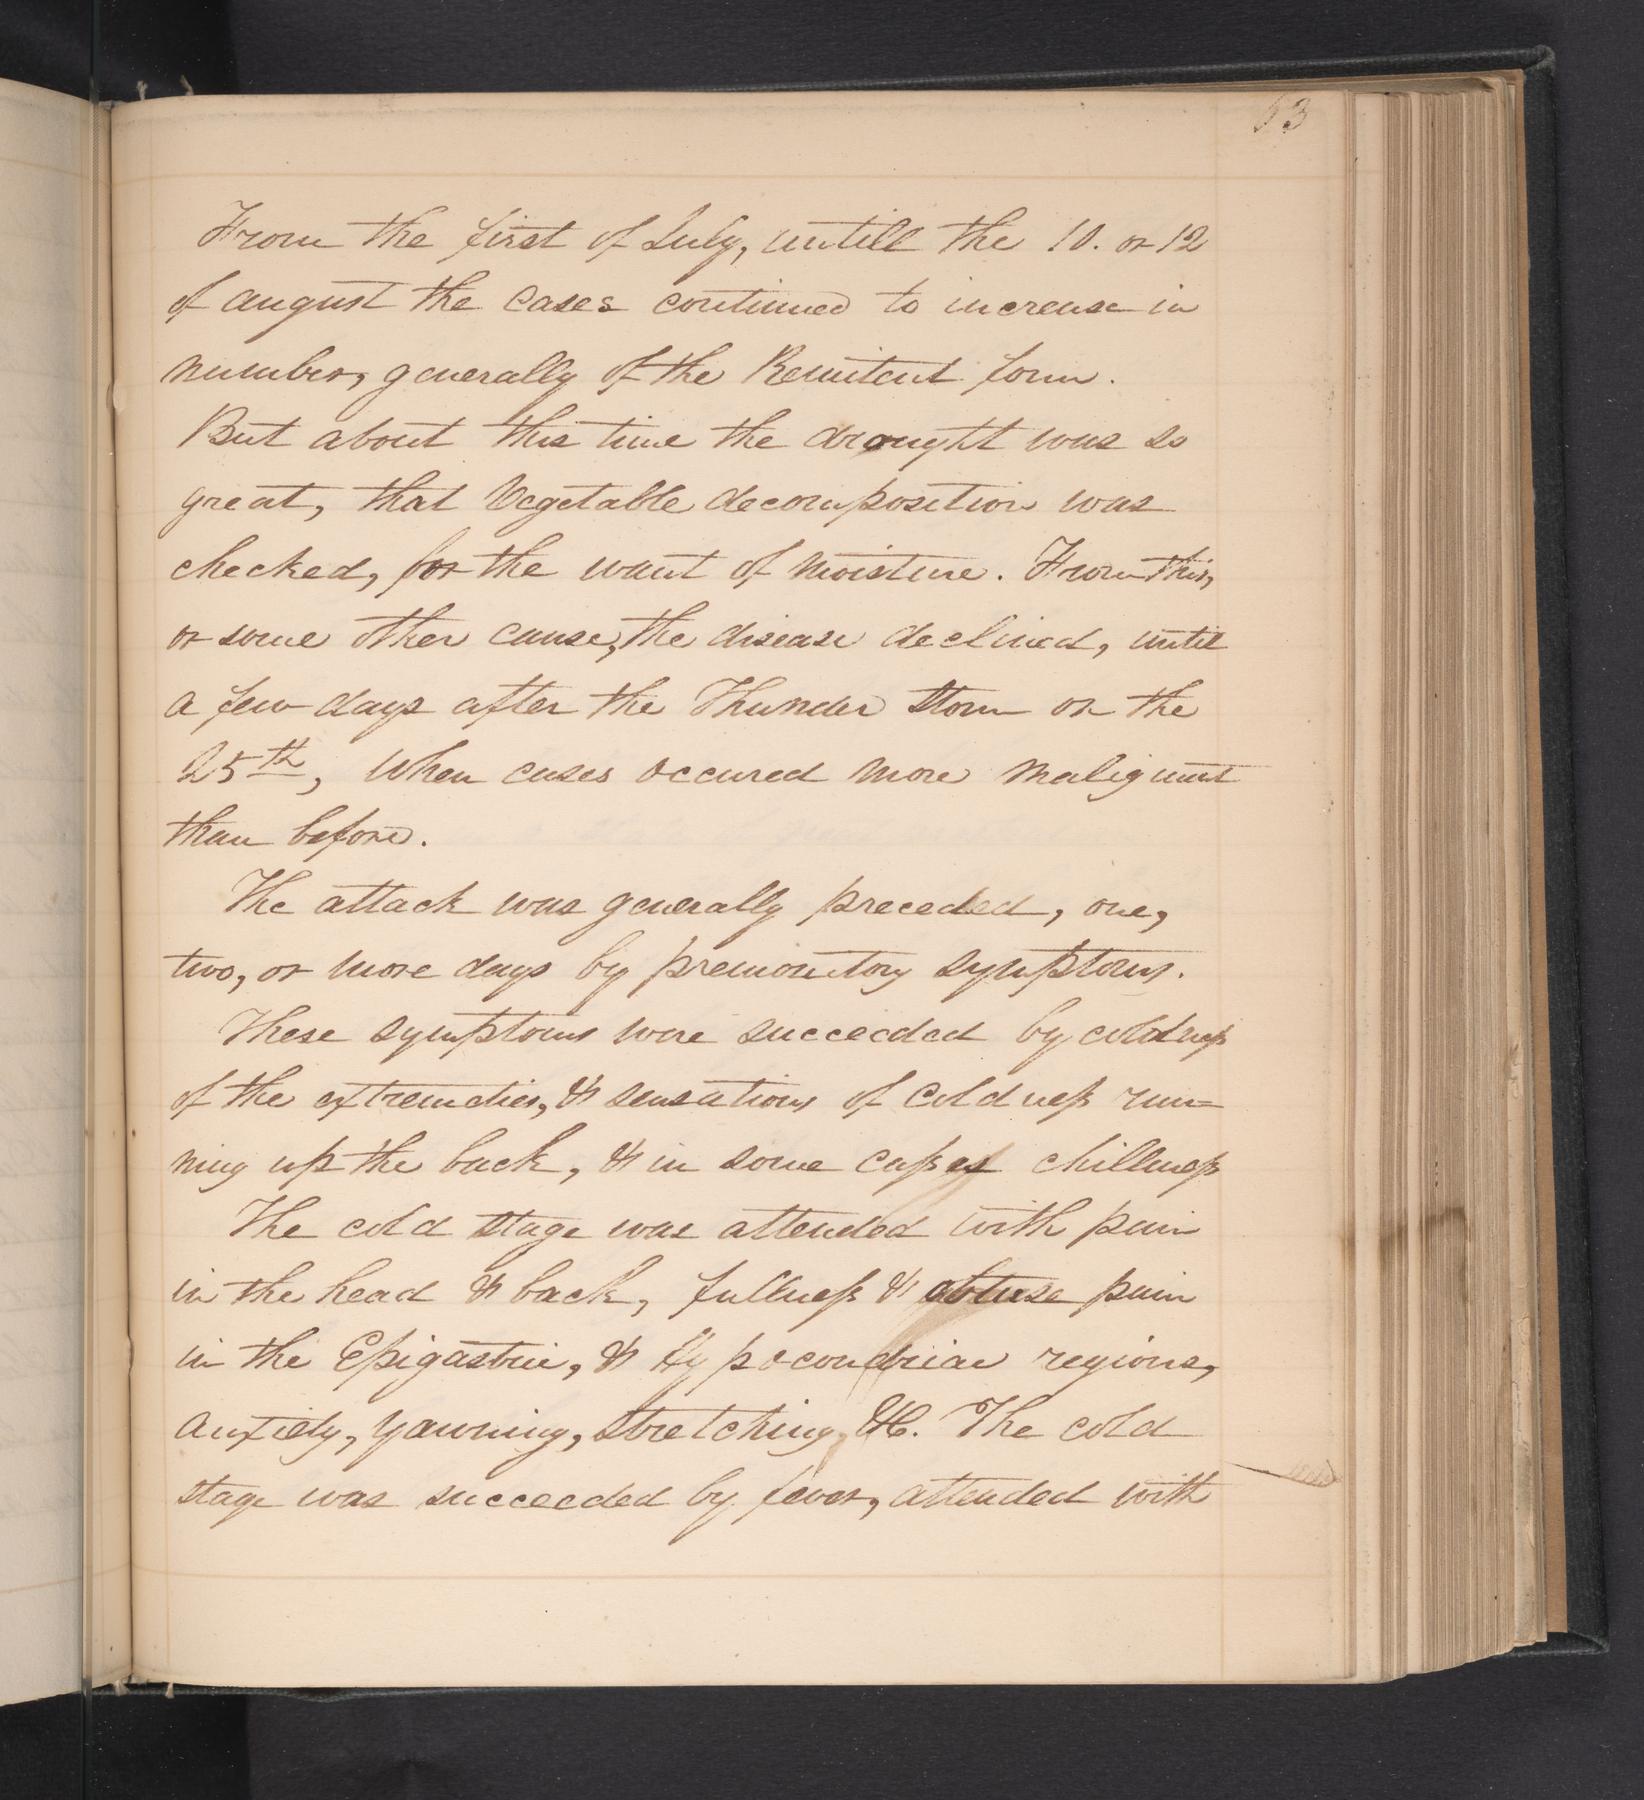 63
From the first of July, untill the 10. or 12
of august the cases continued to increase in
number, generally of the Remitent form.
But about this time the drought was so
great, that Vegetable decomposition was
checked, for the want of moisture. From this,
or some other cause, the disease declined, until
a few days after the Thunder storm on the
25th, When cases occured more malignant
than before.
The attack was generally preceded, one,
two, or more days by premonitory symptoms.
These symptoms were succeeded by coldness
of the extremeties, & sensations of coldness run=
ning up the back, & in some cases chillness
The cold stage was attended with pain
in the head & back, fullness & obtuse pain
in the Epigastric, & Hypocondriac regions,
anxiety, yawning, stretching, &c. The cold
stage was succeeded by fever, attended with